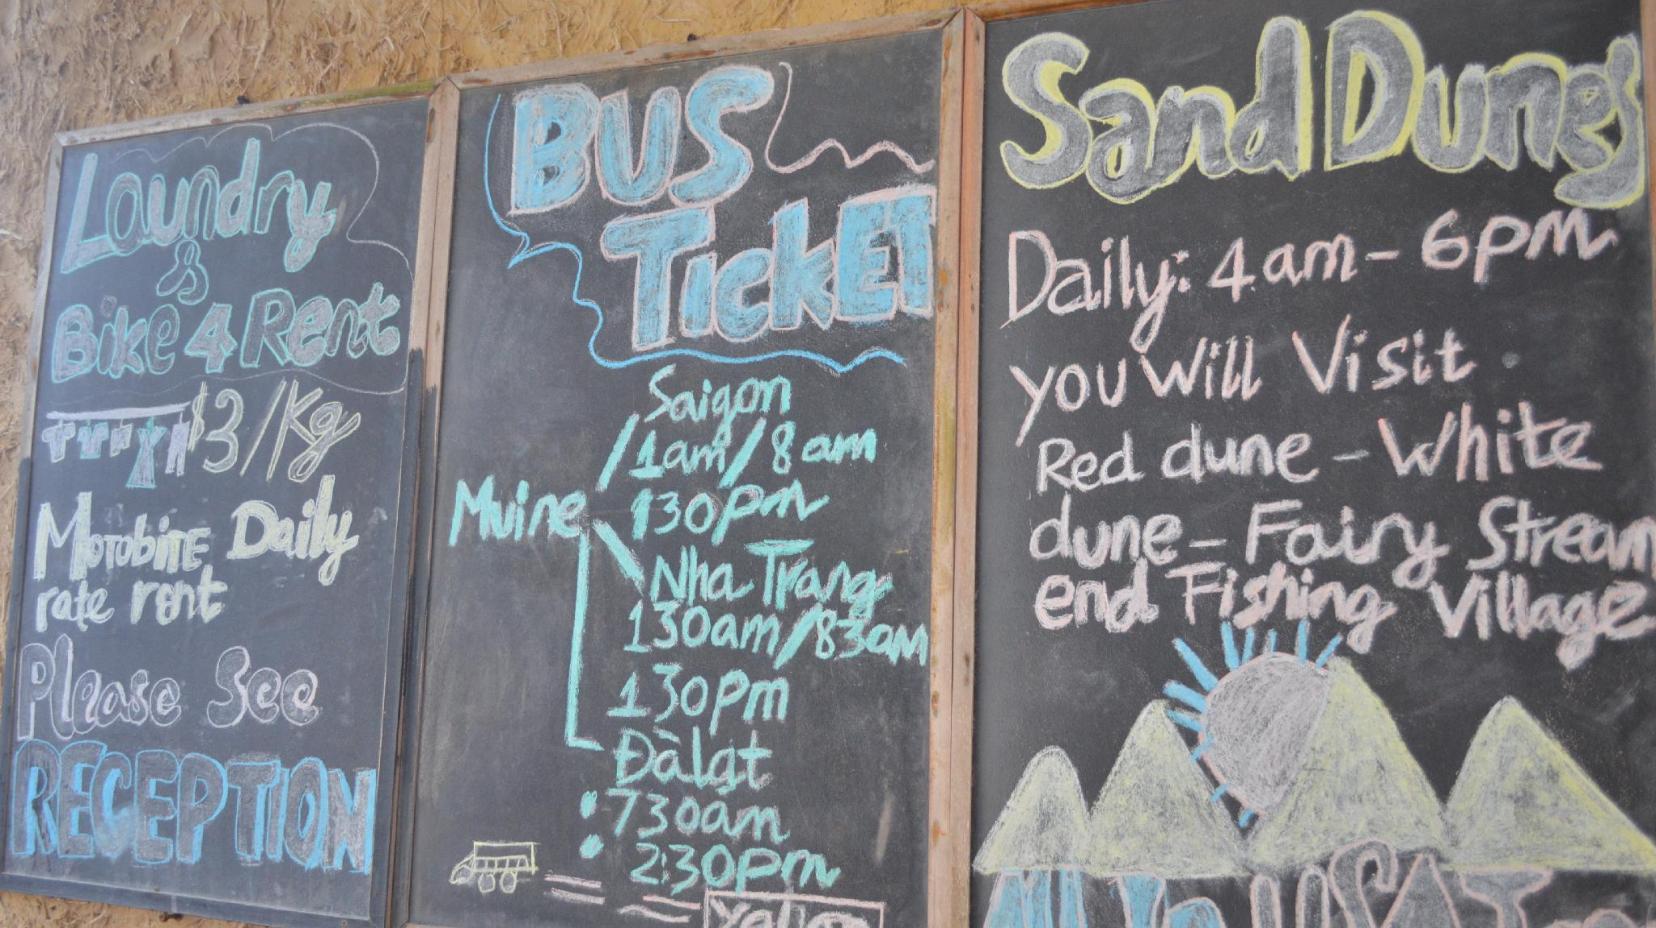 Laundry
&
Bike 4 Rent
$3/Kg
MOTOBIKE Daily
rate rent
Please See
RECEPTION
BUS
TICKET
Saigon
/1am/8am
Muine 130pm
Nha Trang
130am/830am
130pm
Đàlạt
730am
2:30pm
Sand Dunes
Daily: 4am - 6pm
you Will Visit
Red dune - White
dune - Fairy Stream
end Fishing Village